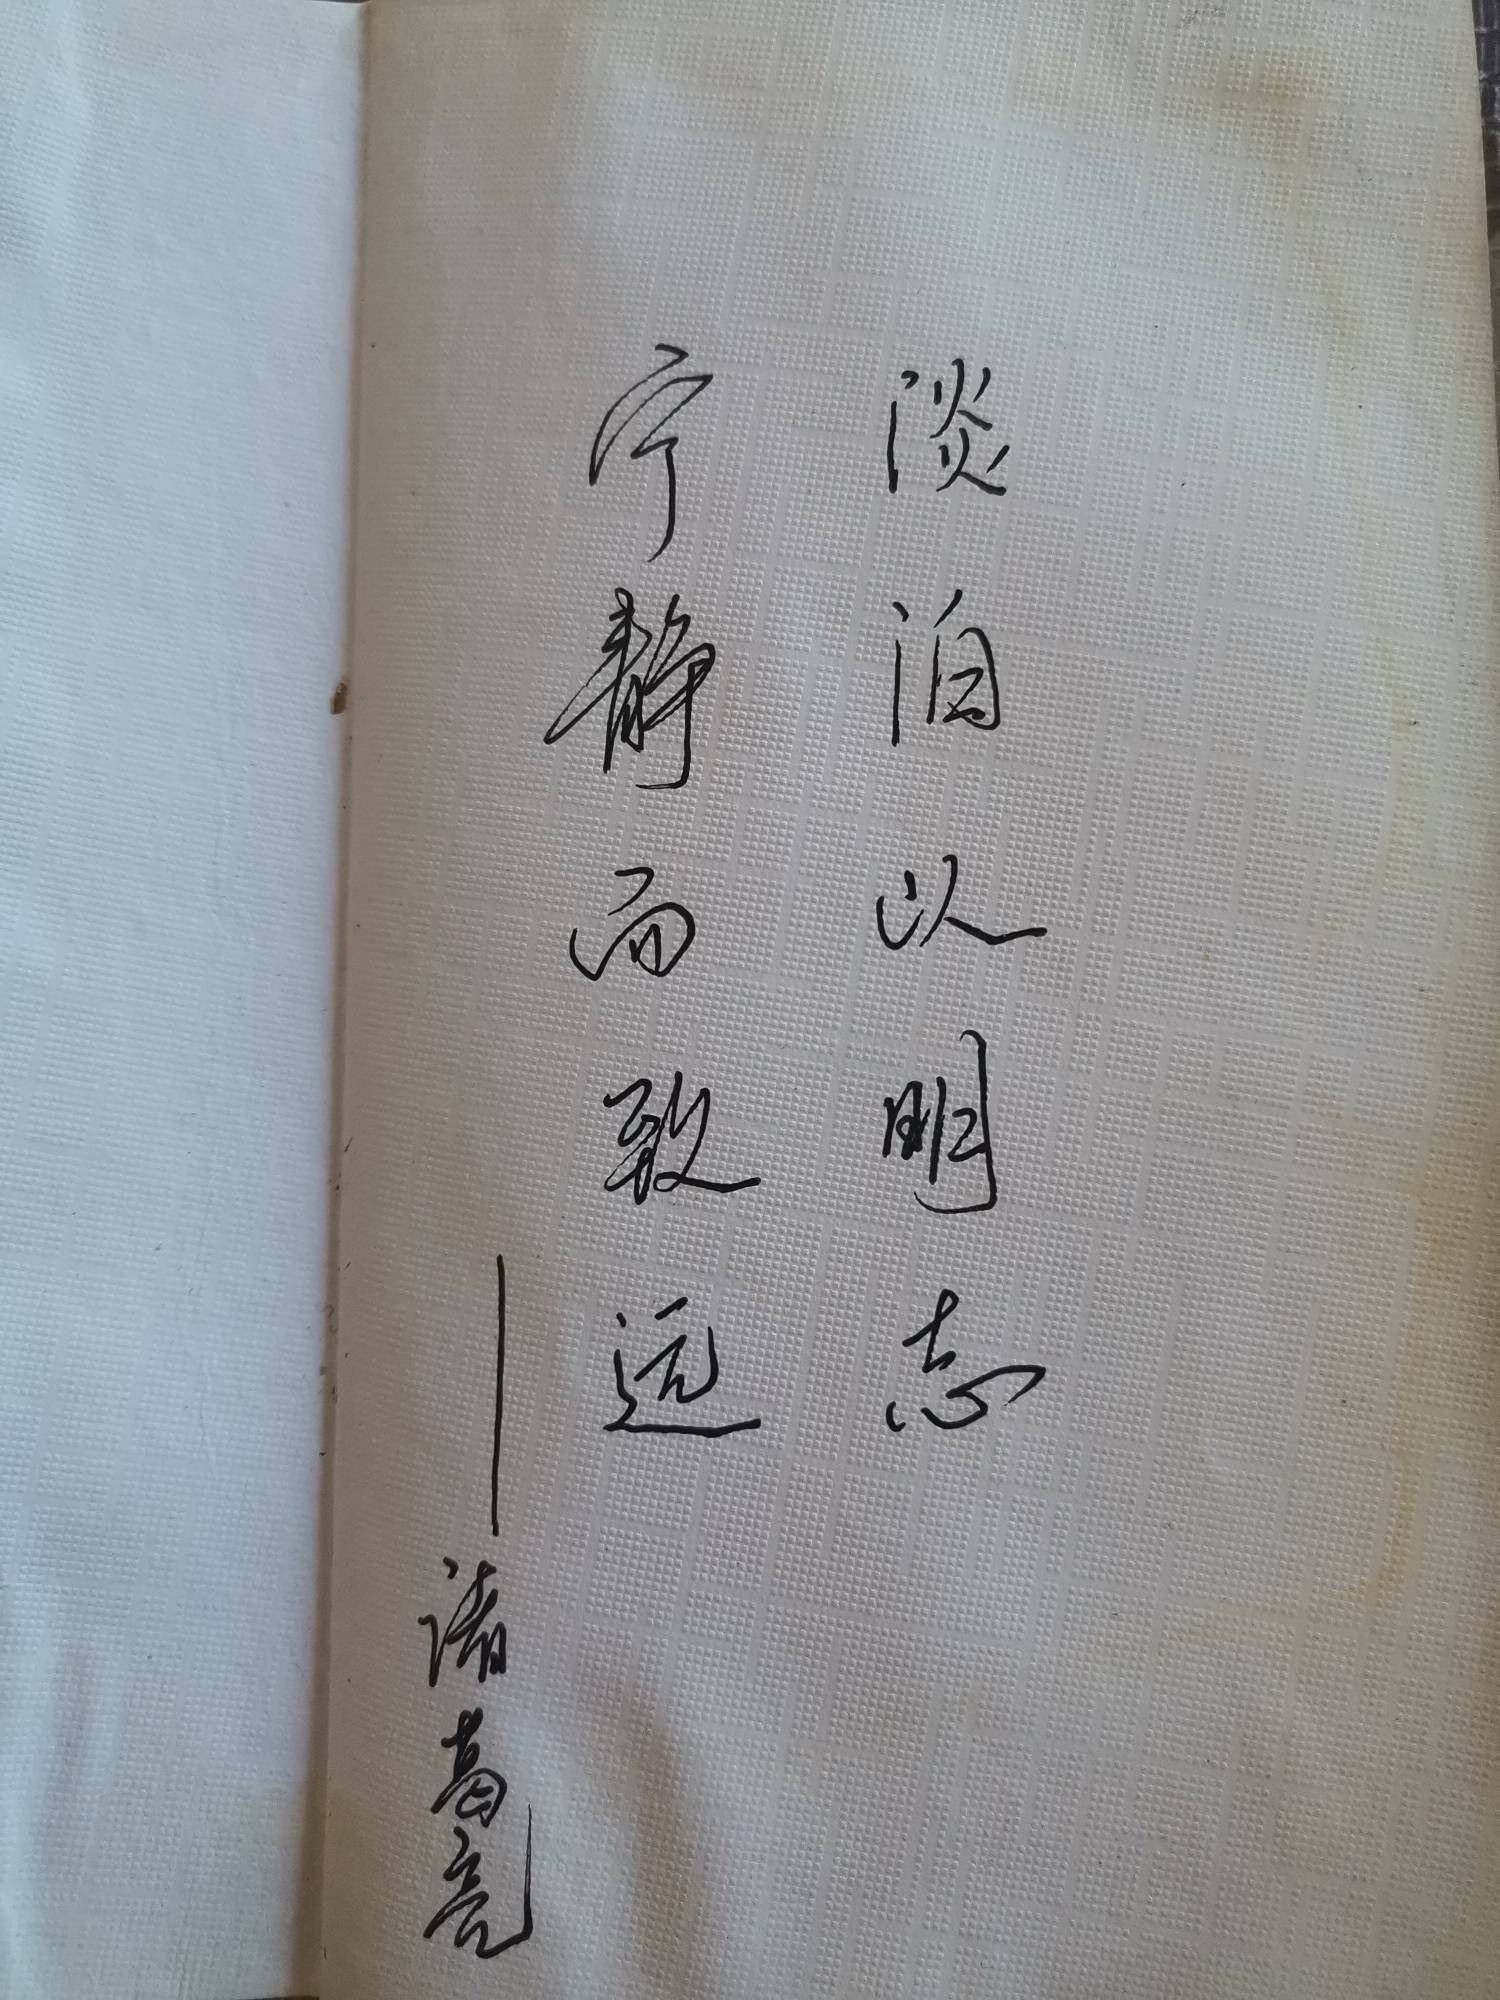 淡泊以明志
宁静而致远
——诸葛亮